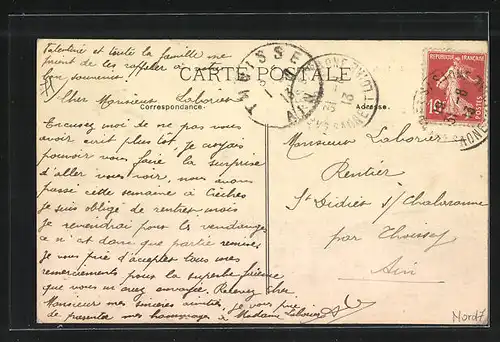 Valentine et toute la famille me
prient de les rappeler à votre
bon souvenir.
CARTE POSTALE
Correspondance.
Adresse.
THOISSEY
AIN
RÉPUBLIQUE FRANÇAISE
POSTES
Cher Monsieur Laborier
Excusez moi de ne pas vous
avoir écrit plus tôt. Je croyais
pouvoir vous faire la surprise
d'aller vous voir, nous avons
passé cette semaine à Crêches
je suis obligé de rentrer mais
je reviendrai pour les vendanges
ce n'est donc que partie remise
Je vous prie d'accepter tous mes
remerciements pour la superbe
que vous m'avez envoyée. Recevez cher
Monsieur mes sincères amitiés, je vous prie
de présenter mes hommages à Madame Laborier
Monsieur Laborier
Rentier
St Didier s/ Chalaronne
par Thoissey
Ain
Nord7